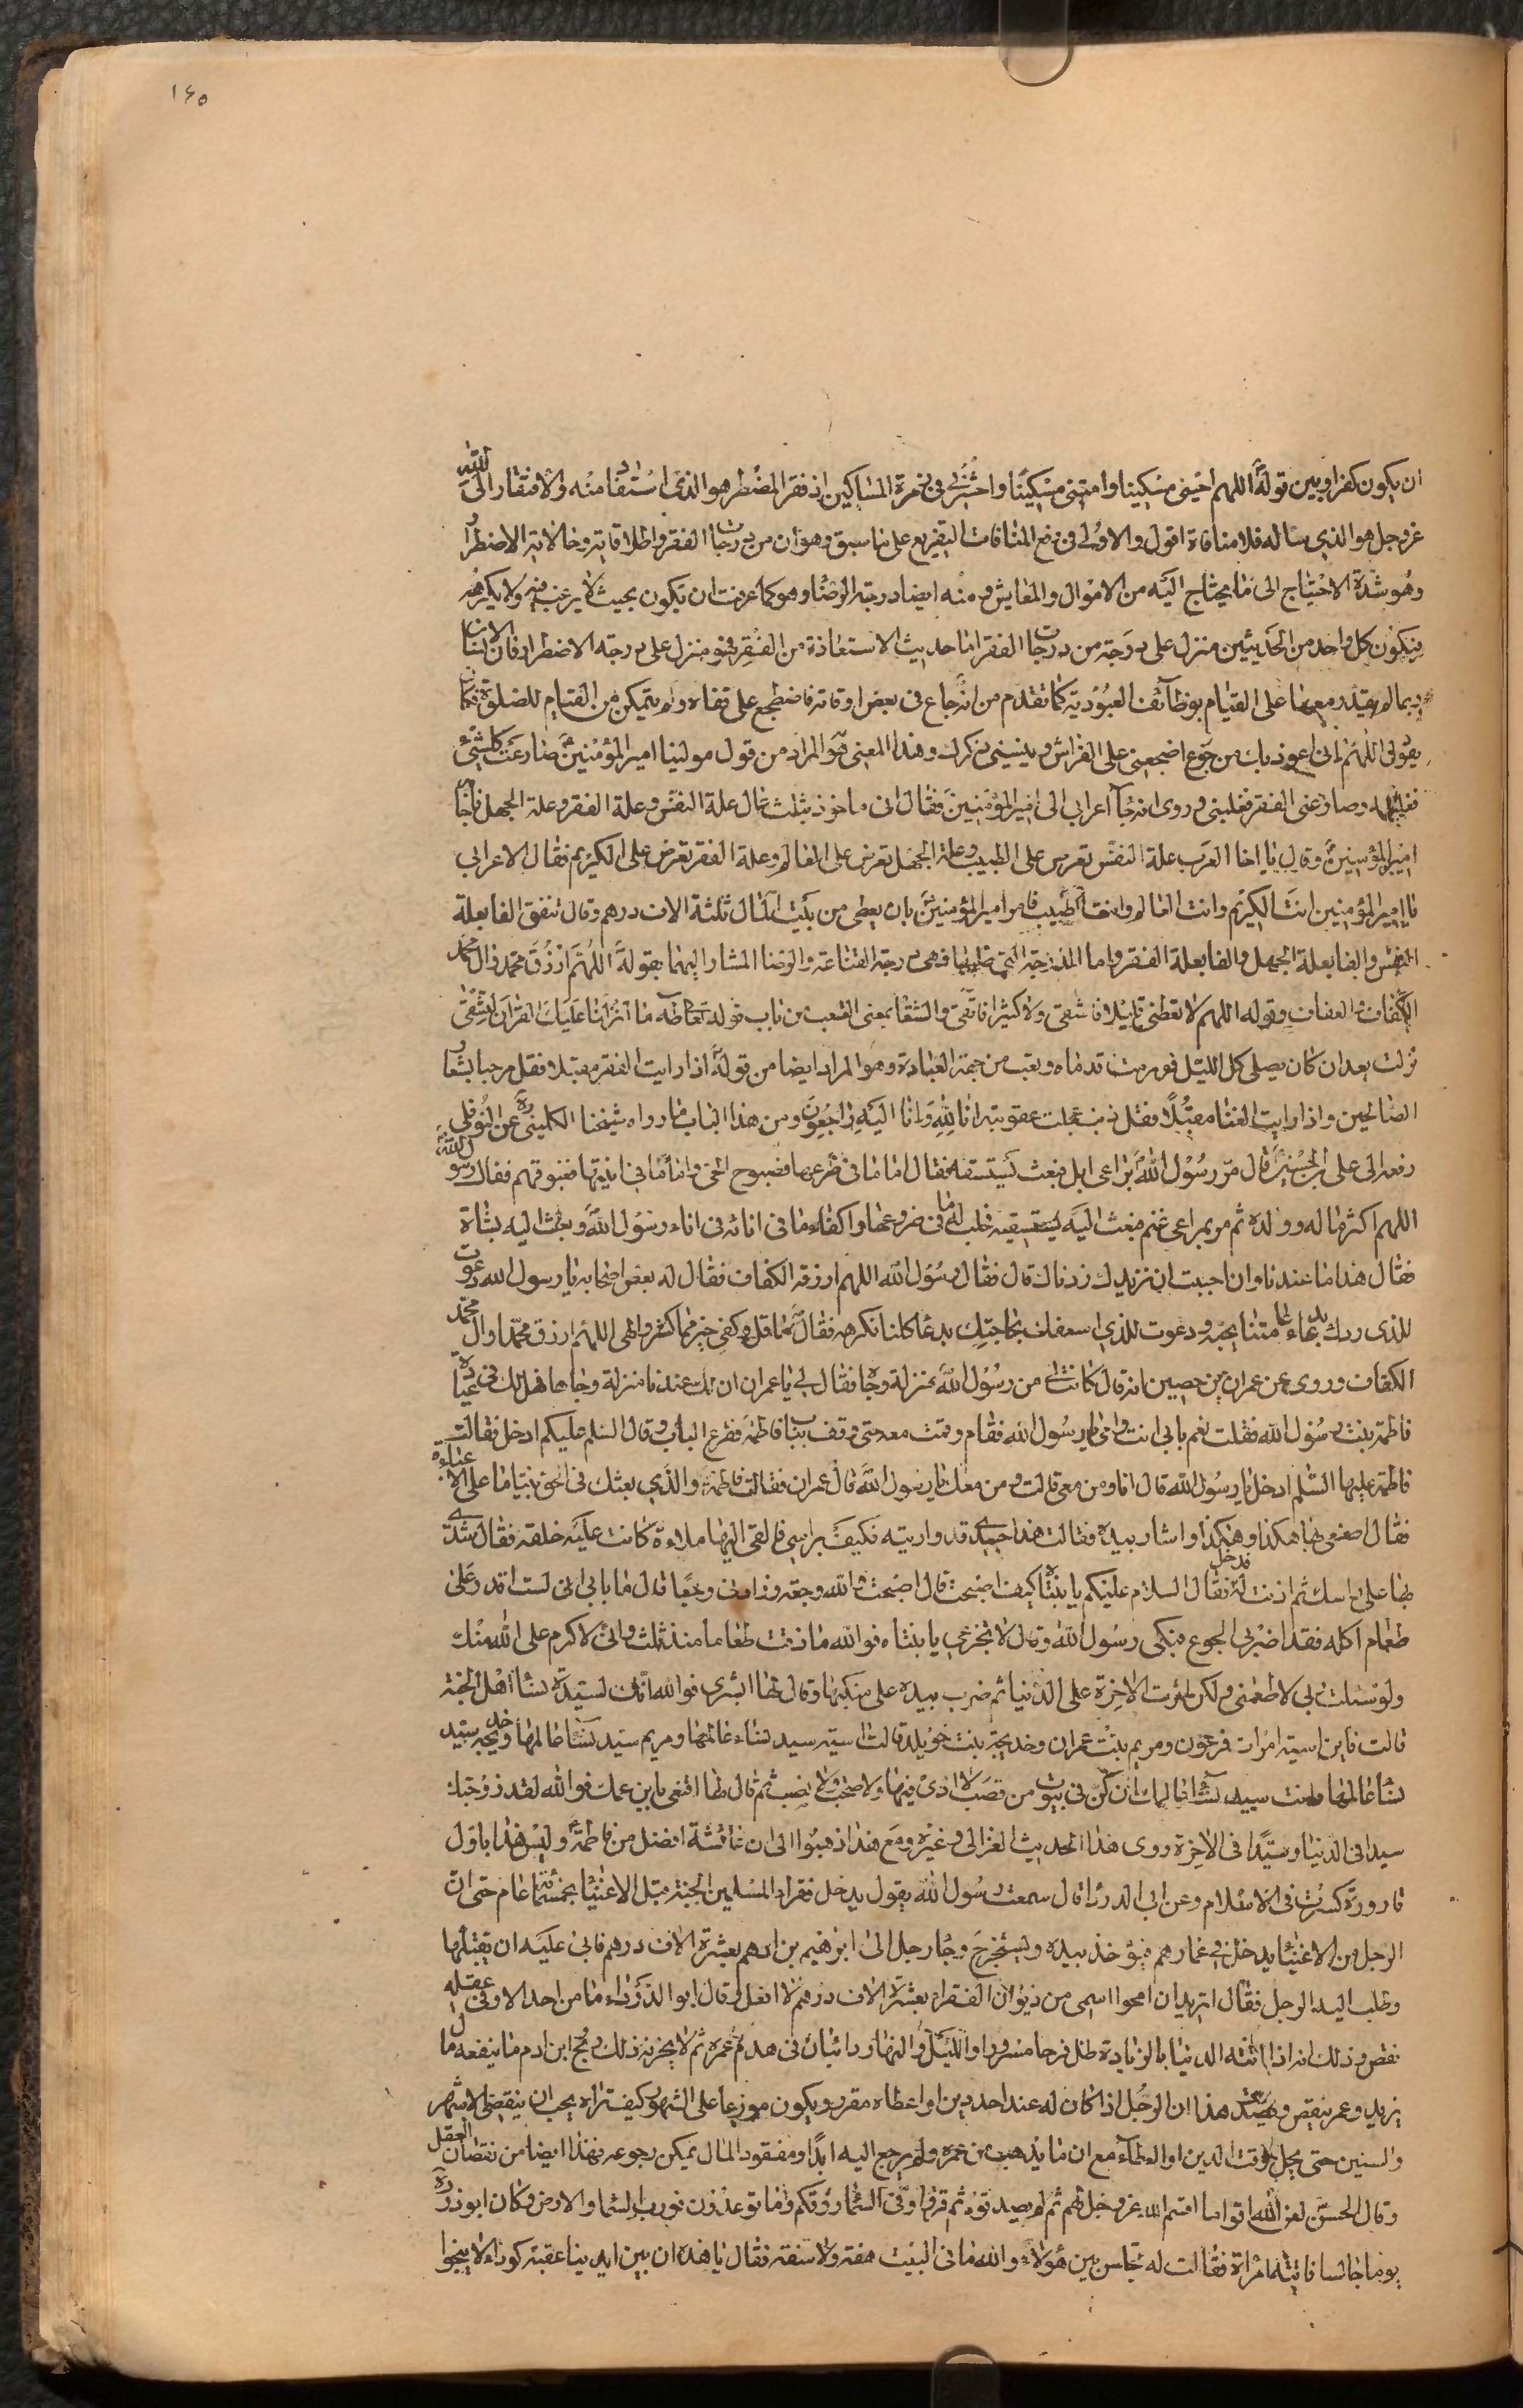 ١٤٥
ان يكون كفرا وبين قولهؐ اللهم احينى مسكينا وامتنى مسكينا واحشرنى فى زمرة المساكين اذ فقر المضطر هو الذى استعاذ منه والافتقار الى الله
عز وجل هو الذى ساله فلا منافاة اقول والاولى فى دفع المنافات التفريع على ما سبق وهو ان من درجات الفقر واطلاقاته وحالاته الاضطرار
وهو شدة الاحتياج الى ما يحتاج اليه من الاموال والمعايش ومنه ايضا درجة الرضا وهو كما عرفت ان تكون بحيث لا يرغب فيه ولا يكرهه
فيكون كل واحد من الحديثين منزل على درجة من درجات الفقر اما حديث الاستعاذة من الفقر فهو منزل على درجة الاضطرار فان الانسان
ربما لم يقدر معها على القيام بوظائف العبودية كما تقدم من انه جاع فى بعض اوقاته فاضطجع على قفاه ولم يتمكن من القيام للصلوة فكان
يقول اللهم انى اعوذ بك من جوع اضجعنى على الفراش وينسينى ذكرك وهذا المعنى هو المراد من قول مولينا امير المؤمنينؑ صارعت كلشئ
فغلبته وصارعنى الفقر فغلبنى وروى انه جآ اعرابى الى امير المؤمنينؑ فقال انى ماخوذ بثلث علل علة النفس وعلة الفقر وعلة الجهل فاجابه
امير المؤمنينؑ وقال يا اخا العرب علة النفس تعرض على الطبيب وعلة الجهل تعرض على العالم وعلة الفقر تعرض على الكريم فقال الاعرابى
يا امير المؤمنين انت الكريم وانت العالم وانت الطبيب فامر امير المؤمنينؑ بان يعطى من بيت المال ثلثة الاف درهم وقال تنفق الفا بعلة
النفس والفا بعلة الجهل والفا بعلة الفقر واما الدرجة التى طلبها فهى درجة القناعة والرضا المشار اليهما بقولهؐ اللهم ارزق محمد وال محمد
الكفاف والعفاف وقوله اللهم لا تعطنى قليلا فاشقى ولا كثيرا فاتقى والشقا بمعنى التعب من باب قوله تعا طه ما انزلنا عليك القران لتشقى
نزلت بعد ان كان يصلى كل الليل فورمت قدماه وتعب من جهة العبادة وهو المراد ايضا من قولهؐ اذا رايت الفقر مقبلا فقل مرحبا بشعار
الصالحين واذا رايت الغنا مقبلا فقل ذنب عجلت عقوبته انا لله وانا اليه راجعون ومن هذا الباب ما رواه شيخنا الكلينىره عن النوفلى
رفعه الى على بن الحسينؑ قال مر رسول اللهؐ براعى ابل فبعث يستسقيه فقال اما ما فى ضرعها فصبوح الحى واما ما فى انيتها فغبوقهم فقال رسول اللهؐ
اللهم اكثر ماله وولده ثم مر براعى غنم فبعث اليه يستسقيه فحلب له ما فى ضروعها واكفاء ما فى انائه فى اناء رسول اللهؐ وبعث اليه بشاة
فقال هذا ما عندنا وان احببت ان نزيدك زدناك قال فقال رسول الله اللهم ارزقه الكفاف فقال له بعض اصحابه يا رسول الله دعوت
للذى ردك بدعاء عامتنا يحبه ودعوت للذى اسعفك بحاجتك بدعا كلنا نكرهه فقالؐ ما قل وكفى خير مما كثر والهى اللهم ارزق محمدا وال محمد
الكفاف وروى عن عمران بن حصين انه قال كانت لى من رسول اللهؐ منزلة وجاه فقال لى يا عمران ان لك عندنا منزلة وجاها فهل لك فى عيادة
فاطمة بنت رسول الله فقلت نعم بابى انت وامى يا رسول الله فقام وقمت معه حتى وقف بباب فاطمة فقرع الباب وقال السلم عليكم ادخل فقالت
فاطمة عليها السلم ادخل يا رسول الله قال انا ومن معى قالت ومن معك يا رسول الله قال عمران فقالت فاطمةؑ والذى بعثك فى الحق نبيا ما على الا عباءة
فقال اصنعى بها هكذا وهكذا واشار بيده فقالت هذا جسدى قد واريته فكيف براسى فالقى اليها ملاءة كانت عليه خلقه فقال شدى
بها على راسك ثم اذنت له فدخل فقال السلام عليكم يا بنتاه كيف اصبحت قال اصبحت والله وجعه وزادنى وجعا قال ما بابى انى لست اقدر على
طعام اكله فقد اضر بى الجوع فبكى رسول اللهؐ وقال لا تجزعى يا بنتاه فوالله ما ذقت طعاما منذ ثلث وانى لاكرم على الله منك
ولو سئلت ربى لاطعمنى ولكن اثرت الاخرة على الدنيا ثم ضرب بيده على منكبها وقال لها ابشرى فوالله انك لسيدة نساء اهل الجنة
قالت فاين اسية امرات فرعون ومريم بنت عمران وخديجة بنت خويلد قالت اسيه سيد نساء عالمها ومريم سيد نسآ عالمها وخديجه سيد
نسآ عالمها وانت سيد نسآ عالمك انكن فى بيوت من قصب لا اذى فيها ولا صخب ولا نصب ثم قال لها اقنعى بابن عمك فوالله لقد زوجتك
سيدا فى الدنيا وسيدا فى الاخرة وروى هذا الحديث الغزالى وغيره ومع هذا ذهبوا الى ان عائشة افضل من فاطمةؑ وليس هذا باول
قارورة كسرت فى الاسلام وعن ابى الدردا قال سمعت رسول الله يقول يدخل فقراء المسلمين الجنة قبل الاغنيا بخمسمائة عام حتى ان
الرجل من الاغنيا يدخل فى غمارهم فيؤخذ بيده ويستخرج وجاء رجل الى ابرهيم بن ادهم بعشرة الاف درهم فابى عليه ان يقبلها
وطلب اليه الرجل فقال اتريد ان امحوا اسمى من ديوان الفقراء بعشرة الاف درهم لا افعل قال ابو الدرداء ما من احد الا وفى عقله
نقص وذلك انه اذا اتته الدنيا بالزيادة ظل فرحا مسرورا والليل والنهار دائبان فى هدم عمره ثم لا يحزنه ذلك ويح ابن ادم ما ينفعه مال
يزيد وعمر ينقص هذا ان الرجل اذا كان له عند احد دين او اعطاه مقرر ويكون موزعا على الشهور كيف تراه يحب ان ينقضى الاشهر
والسنين حتى يحل وقت الدين او العطآء مع ان ما يذهب من عمره لم يرجع اليه ابدا ومفقود المال يمكن رجوعه فهذا ايضا من نقصان العقل
وقال الحسنؑ لعن الله اقواما اقسم الله عز وجل لهم ثم لم يصدقوه ثم قراء وفى السماء رزقكم وما توعدون فورب السماء والارض وكان ابوذرره
يوما جالسا فاتته امراة فقالت له تجلس بين هؤلاء والله ما فى البيت هفة ولا سفة فقال يا هذه ان بين ايدينا عقبة كوداء لا ينجوا